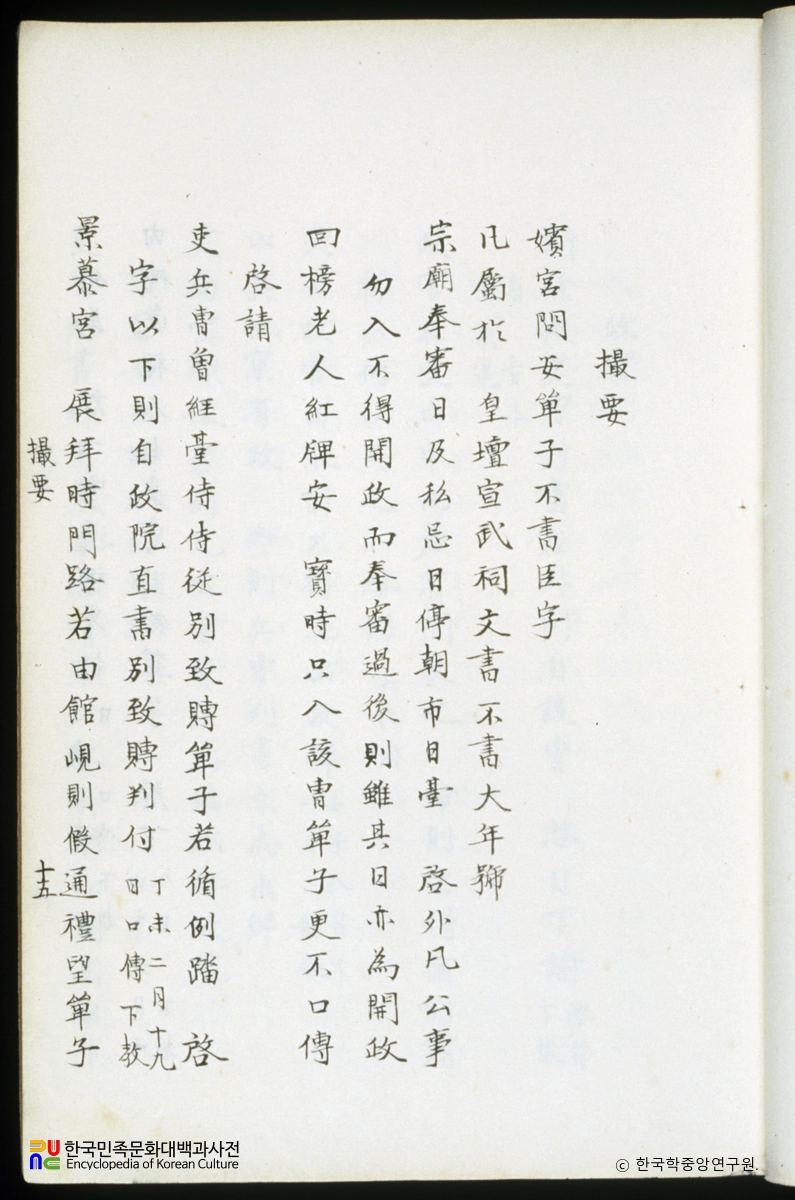 撮要
嬪宮問安單子不書臣字
凡屬於 皇壇宣武祠文書不書大年號
宗廟奉審日及私忌日停朝市日臺 啓外凡公事
勿入不得開政而奉審過後則雖其日亦為開政
回榜老人紅牌安 寶時只入該曺單子更不口傳
啓請
吏兵曺曾經臺侍侍從別致賻單子若循例踏 啓
字以下則自政院直書別致賻判付 丁未二月十九日口傳下教
景慕宮 展拜時門路若由館峴則假通禮望單子
撮要
十五
한국민족문화대백과사전
Encyclopedia of Korean Culture
© 한국학중앙연구원